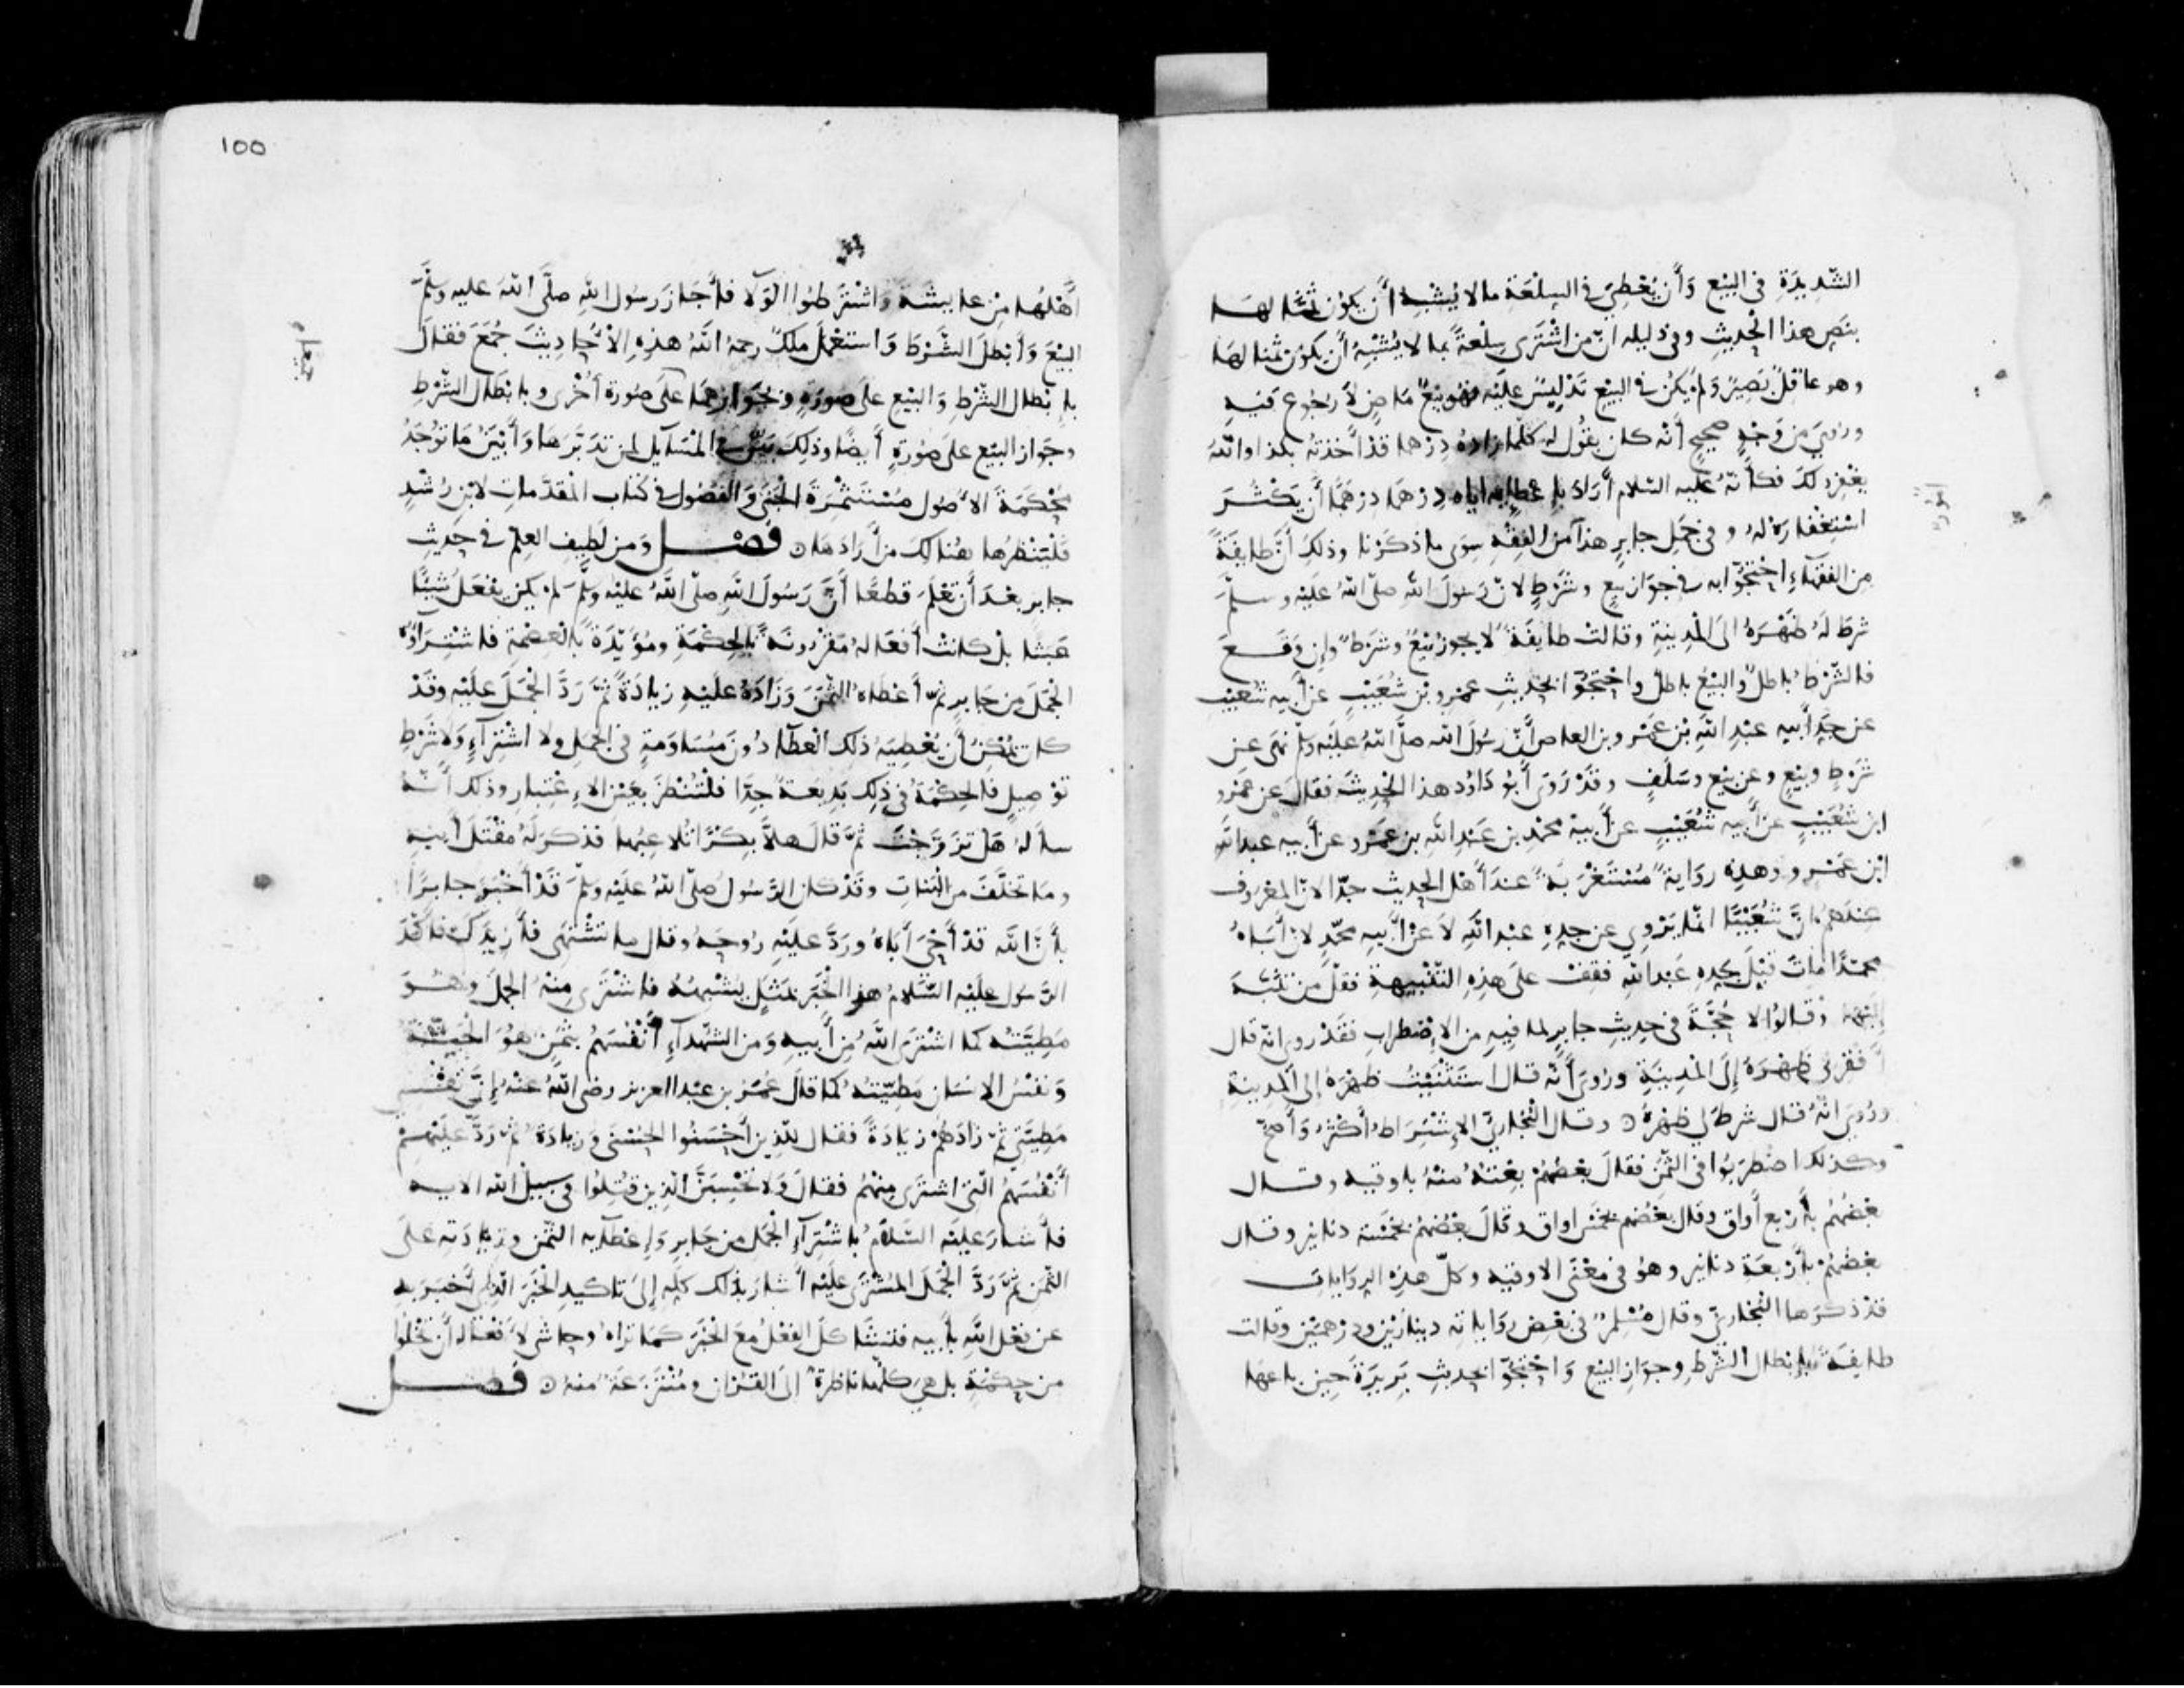 الشّديدَةِ في البَيْع وَأَن يُعْطِيَ في السِلعَةِ مالا يُشْبِهُ أَن يكونَ ثمَنًا لهَا
بنَصِ هذا الحَديثِ وفي دَليله انّ من اشْتَرى سِلْعةً بما لا يُشْبِهُ أَن يكونَ ثمنا لهَا
وهو عاقِلٌ بَصيرٌ وَلم يَكُن في البَيْعِ تَدْليسٌ عليْه فهو بَيْعٌ مَاضٍ لَا رجُوع فيهِ
ورُوِيَ مِن وَجْهٍ صحيحٍ أَنّه كان يقُول له كلّما زادَهُ دِرْهما قَدْ أَخذتهُ بكذا واللّهُ
يغْفِر لكَ فكأَنّهُ عليه السّلام أَرَادَ بإِعْطايِه اياه دِرْهمًا دِرْهَمًا أَن يَكْثُرَ
اسْتِغْفَارُهُ لهُ وفي جَمَلِ جابرٍ هذا من الفِقْهِ سِوَى ما ذكَرْنا وذلك أَنّ طايفَةً
مِن الفقهَاءِ احْتَجّوا به في جوَاز بيعٍ وشَرْطٍ لانّ رَسُولَ اللهِ صلّى اللهُ علَيْه وسلّمَ
شرَطَ لَهُ ظَهْرَهُ الى المَدِينَةِ وقالتْ طايفَةٌ لا يجوزُ بَيْعٌ وشَرْطٌ وإِن وَقَعَ
فالشّرْطُ باطلٌ والبَيْعُ باطلٌ واحْتَجّوا بحَديثِ عَمْرِو بْنِ شُعَيْبٍ عن أَبيه شُعَيْبٍ
عن جدِّ أَبيه عَبْدِ اللّهِ بْن عَمْرو بن العاص أَنّ رَسُولَ الله صلّى اللهُ علَيْه وسلم نهَى عن
شَرْطٍ وبيْعٍ وعن بيْع وسَلَفٍ وقَدْ رَوَى أَبُو دَاوُد هذا الحَدِيثَ فقالَ عن عَمْرِو
ابن شُعَيْبٍ عن أَبيه شُعَيْبٍ عن أَبيه محمّد بن عَبْدِ اللّهِ بن عَمْرٍو عن أَبيه عبد الله
ابْن عَمْرٍو وهذه رِوَايةٌ مُسْتَغْرَبَةٌ عندَ أَهْل الحديث جدّا لانّ المعْرُوف
عِنْدَهم انَّ شُعَيْبًا انّما يَرْوِي عن جدِّهِ عبد اللّهِ لَا عن أَبيه محمّدٍ لانّ أَبَاهُ
محمّدًا مَاتَ قَبْلَ جَدِّه عَبْد اللّهِ فقِفْ علَى هذِهِ التّنْبِيهةِ فقَلَّ من تَنَبّهَ
إِليْهَا وَقالوُا لا حُجّةَ في حديثِ جابرٍ لما فيهِ من الاِضْطِرابِ فقَدْ رُوي انّه قال
أَفْقَرَني ظَهْرَهُ إِلى المَدِينَةِ ورُويَ أَنّه قال اسْتَثْنَيْتُ ظَهْرَهُ إلى المدِينةِ
ورُوِيَ انّهُ قال شرطَ لي ظَهْرهُ ٥ وقال البُخاريّ الاِشْتِرَاطُ أَكثرُ وَأَصحّ
وكذلك اضْطرَبُوا في الثّمَن فقالَ بعضُهُمْ بعْتهُ منْهُ باوقيه وقال
بعْضُهُم بأَرْبع أَواقٍ وقال بَعْضُهم بخمْس اواق وقَالَ بعْضُهُمْ بخَمْسَة دنانير وقال
بعْضُهُمْ بأَرْبعَةِ دنانير وهُو في معْنى الاوقيه وكلّ هذِهِ الرِوَاياتِ
قدْ ذكرَها البُخاريّ وقال مُسْلِم في بَعْضِ رِوَاياته دينَارَيْنِ ودِرْهمَيْنِ وقالت
طايفَةٌ بإِبْطال الشّرْطِ وجوَازِ البَيْع وَاحْتَجّوا بحديثِ بَرِيرَةَ حينَ باعَها
100
أَهْلُها مِن عايشَةَ وَاشْتَرَطُوا الوَلَا فأَجَازَ رَسُول اللّهِ صلّى اللهُ عليه وسلّمَ
البَيْعَ وَأَبْطلَ الشّرْطَ وَاستَعْمَلَ ملكٌ رحمهُ اللّهُ هذِهِ الاَحَادِيثَ جُمَعَ فقالَ
بإِبْطال الشّرْطِ وَالبَيْعِ علَى صورَةٍ وبجَوَازهِمَا علَى صُورة أُخْرى وبابْطَال الشّرْطِ
وجَواز البَيْع علَى صُورَةٍ أَيضًا وذلكَ بَيّنٌ في المَسَايل لمن تَدَبّرَهَا وَأَبْيَنُ مَا تُوجَدُ
مُحْكَمَةَ الاُصُول مُسْتَثْمِرَةَ الجَنَى وَالفصُول في كتاب المقدّمَاتِ لابْن رُشْدٍ
فَلْيَنْظرْهَا هُنالكَ من أَرَادَهَا ٥ فَصْل وَمن لَطِيفِ العِلْم في حَدِيثِ
جابرٍ بعْدَ أَن تَعْلَمَ قطعًا أَنّ رَسُولَ اللهِ صلّى اللّهُ عليْه وسلّمَ لم يكن يفْعَلُ شيئًا
عَبَثا بل كانتْ أَفعَالهُ مَقْرُونَةً بالحِكْمَةِ ومُؤَيّدَةً بالعِصْمَةِ فاشتِرَآؤُهُ
الجَمَلَ مِن جَابرٍ ثمّ أَعْطاهُ الثّمَنَ وَزَادَهُ علَيْهِ زِيَادَةً ثُمّ رَدَّ الجَمَلَ علَيْه وقَدْ
كان يُمْكِنُ أَن يُعْطِيَهُ ذلك العَطَآءَ دُونَ مُسَاومَةٍ في الجَمَلِ ولا اشْتِرَآءٍ وَلَا شَرْطِ
تَوْصِيلٍ فالحِكْمَةُ في ذلِك بَدِيعَةٌ جِدًّا فلْتُنْظرْ بعَيْن الاِعْتِبار وذلك أَنّهُ
سأَلهُ هَل تزَوّجْتَ ثُمّ قالَ هلاّ بكرًا تُلاعِبُها فذكرَ لَهُ مَقْتَلَ أَبيهِ
ومَا خَلّفَ من البَناتِ وقَدْ كان الرّسُولُ صلّى اللهُ علَيْه وسلمَ قَدْ أَخْبَرَ جابرًا
بأَنّ اللّهَ قَدْ أَحْيَى أَبَاهُ ورَدَّ علَيْهِ رُوحَهُ وقال ما تشْتَهى فأَزِيدَكَ فأَكّدَ
الرّسُول علَيْه السّلامُ هذا الخَبَرَ بمَثَلٍ يُشْبِهُهُ فاشْتَرى مِنْهُ الجَمَلَ وهُوَ
مَطِيّتُهُ كما اشْتَرَى اللّهُ مِن أَبيهِ وَمن الشّهَدآءِ أَنْفُسَهُمْ بثَمَنٍ هُوَ الجَنّةُ
وَنفْسُ الاِنسَان مَطِيّتُهُ كما قالَ عُمَرُ بن عبْد العزيز رضي اللّهُ عنْهُ إِنّ نَفْسِي
مَطِيّتي ثُمّ زادَهُمْ زيَادَةً فقال لِلّذِينَ أَحْسَنُوا الحُسْنى وَزِيَادَةٌ ثُم رَدَّ علَيْهِمْ
أَنْفُسَهُمُ الّتي اشترَى مِنهُم فقال وَلا تَحْسِبَنَّ الّذِين قُتِلُوا في سَبيل الله الايه
فأَشارَ علَيْه السّلامُ باشْتِرَآءِ الجَمَل من جَابرٍ وَإِعْطَآئِه الثّمَن وزيادَته علَى
الثّمن ثُمّ رَدّ الجَمَلَ المُشْتَرَى علَيْه أَشارَ بذلك كلِّهِ إِلى تاكيدِ الخَبَرِ الّذِي أَخبَرَ بهِ
عن فعْل اللّهِ بأَبيه فتشَاكلَ الفعْلُ معَ الخَبَرِ كمَا تَراهُ وحاشَ لأَفْعَالهِ أَن تَخْلُوَا
من حِكْمَةٍ بل هيَ كلّها ناظرَةٌ الى القُرْآن ومُنْتَزَعَةٌ منهُ ٥ فَصْل